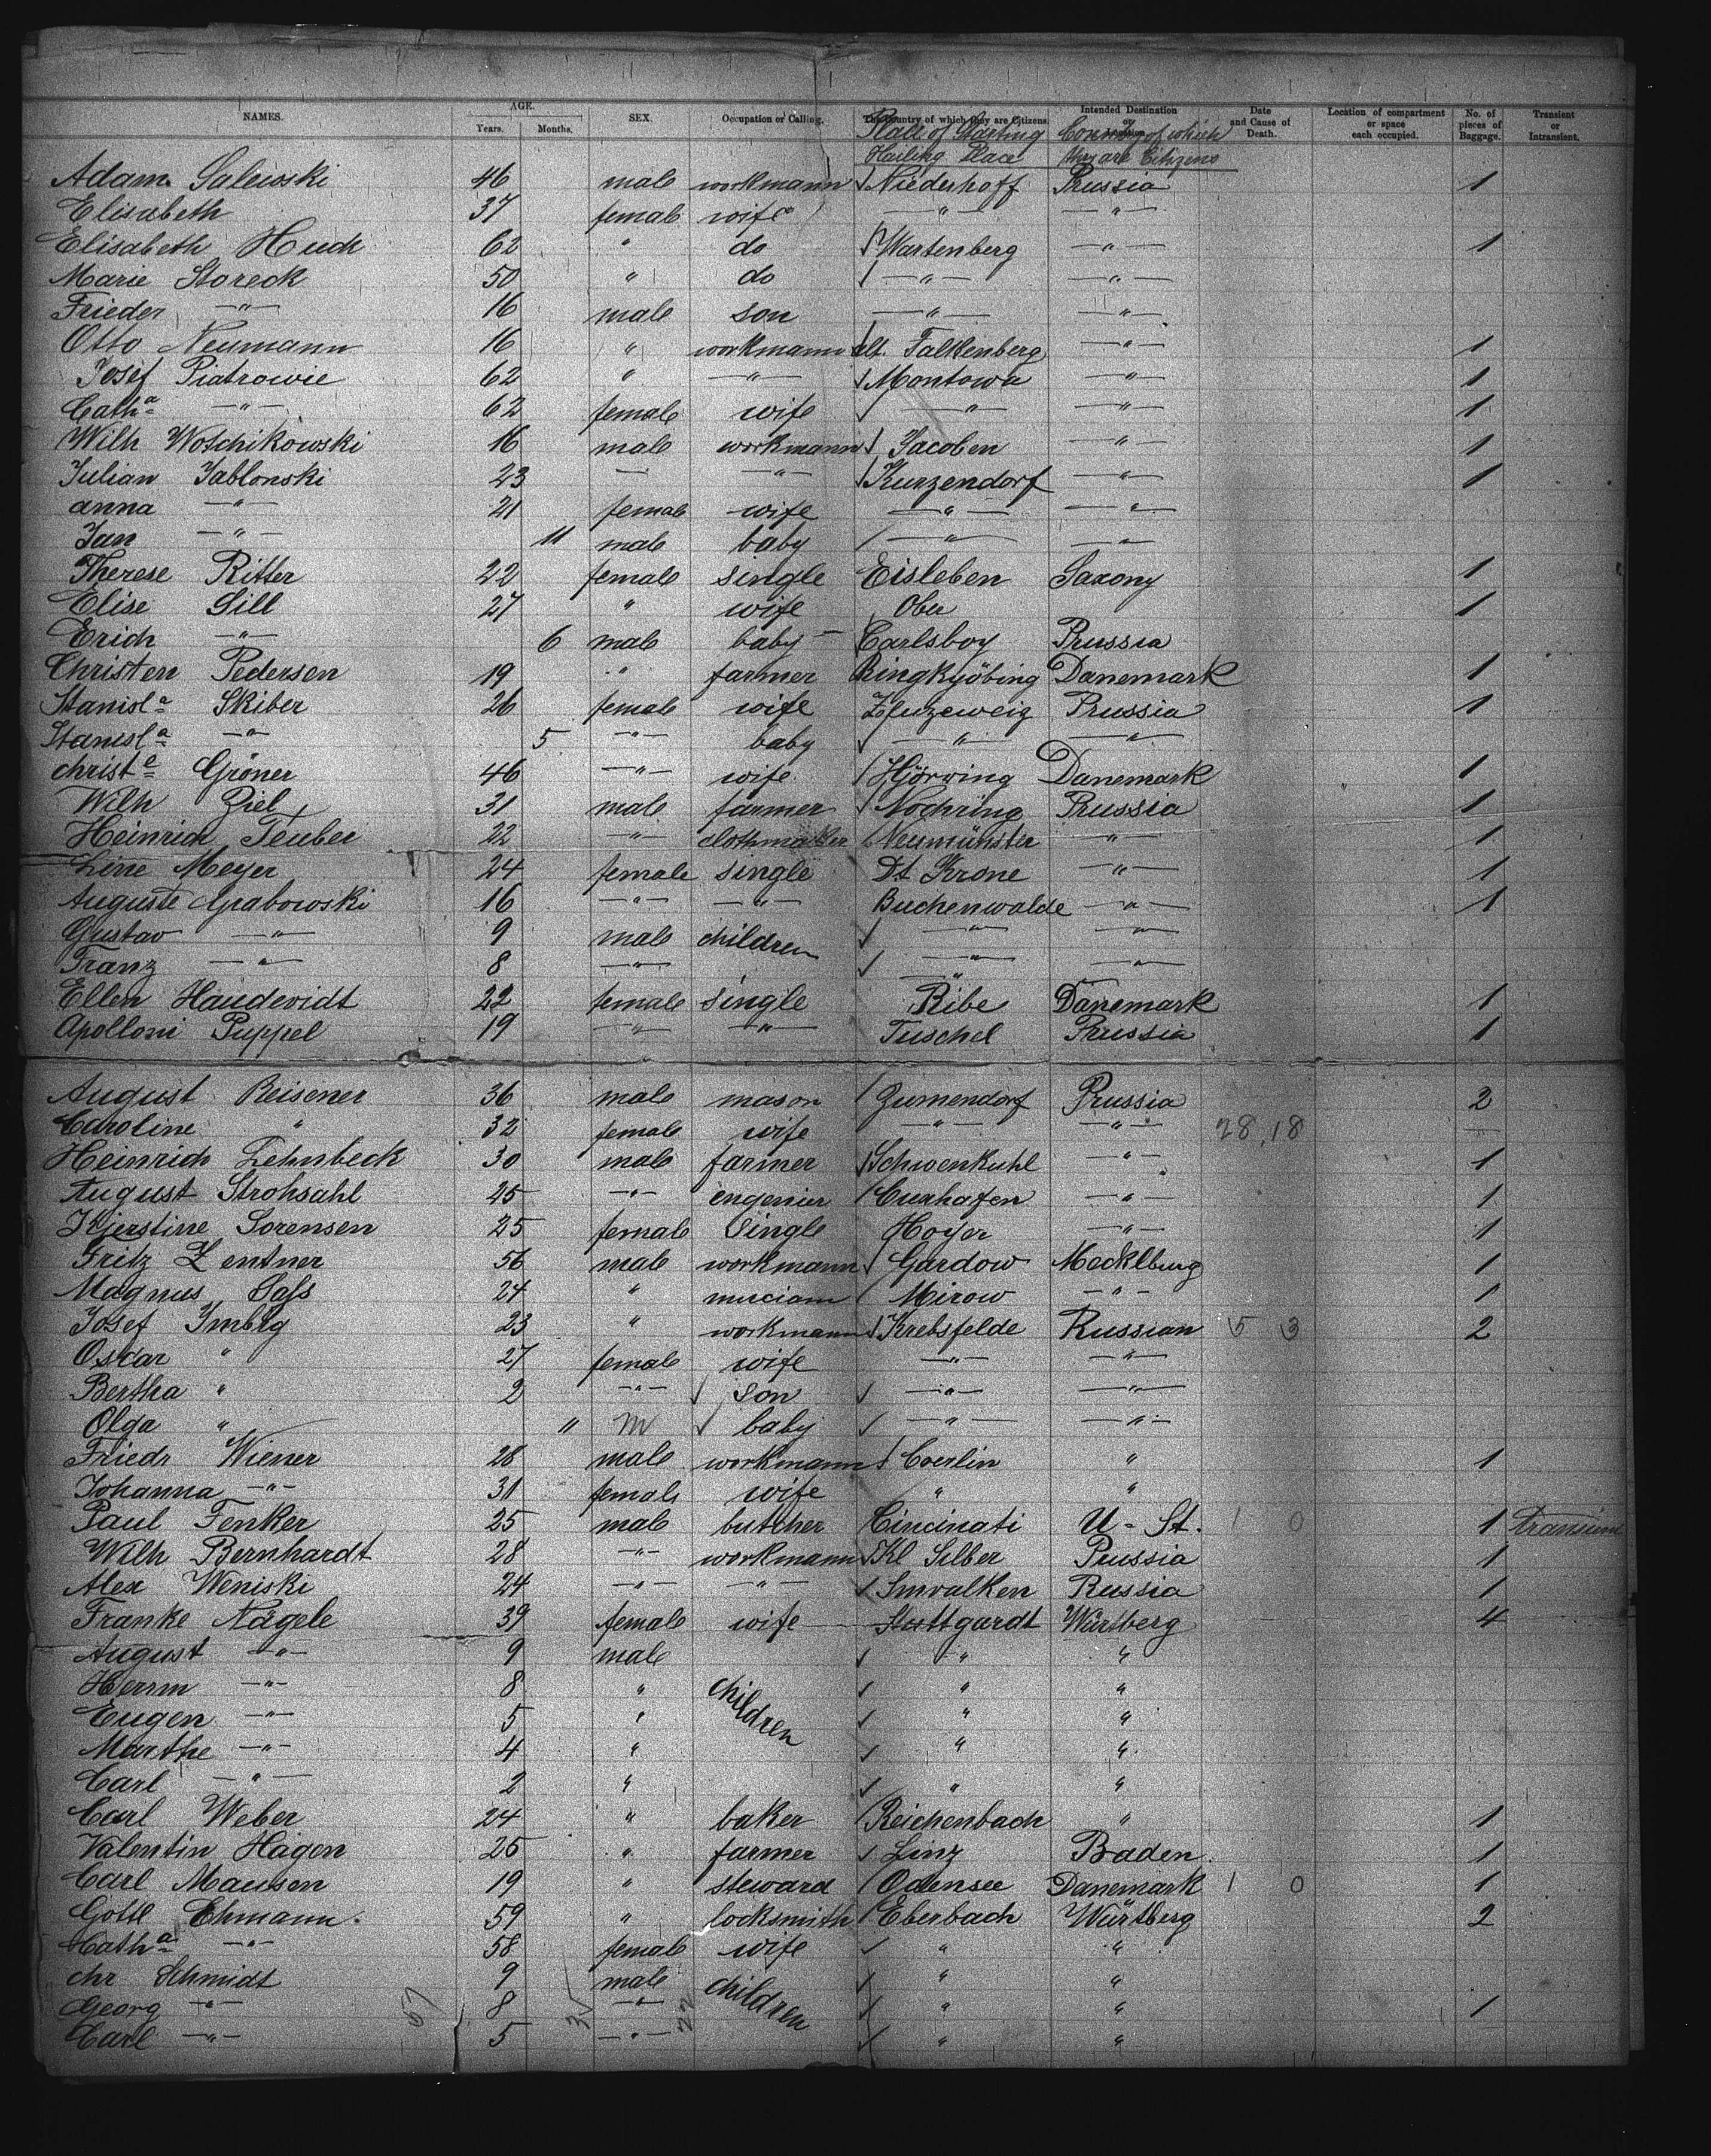 NAMES. AGE. Years. Months. SEX. Occupation or Calling. The Country of which they are Citizens. Intended Destination Date and Cause of Death. Location of compartment or space each occupied. No. of pieces of Baggage. Transient or Intransient.
Place of Starting Country of which
Hailing Place they are Citizens
Adam Salewski 46 male workmann Niederhoff Prussia 1
Elisabeth 37 female wife —"— —"—
Elisabeth Huch 62 " do Wartenberg —"— 1
Marie Storeck 50 " do —"— —"—
Frieder —"— 16 male son —"— —"—
Otto Neumann 16 " workmann alt. Falkenberg —"— 1
Josef Piatrowie 62 " —"— Montowa —"— 1
Catha —"— 62 female wife —"— —"— 1
Wilh Wotschikowski 16 male workmann Jacoben —"— 1
Julian Jablonski 23 — —"— Kurzendorf —"— 1
anna —"— 21 female wife —"— —"—
Jan —"— 11 male baby —"— —"—
Therese Ritter 22 female single Eisleben Saxony 1
Elise Sill 27 " wife Ober 1
Erich —"— 6 male baby — Carlsboy Prussia
Christen Pedersen 19 " farmer Ringkjöbing Danemark 1
Stanisla Skiber 26 female wife Prussia 1
Stanisla —"— 5 —"— baby —"— —"—
christe Gröner 46 —"— wife Hjörring Danemark 1
Wilh Ziel 31 male farmer Nochring Prussia 1
Heinrich Teuber 22 —"— clothmaker Neumünster —"— 1
Line Meyer 24 female single Dt Krone —"— 1
Auguste Grabowski 16 —"— —"— Buchenwalde —"— 1
Gustav —"— 9 male children —"— —"—
Franz —"— 8 —"— —"— —"—
Ellen Haudevidt 22 female single Ribe Danemark 1
Apolloni Puppel 19 —"— —"— Tuschel Prussia 1
August Reisener 36 male mason Gumendorf Prussia 2
Caroline " 32 female wife —"— —"— 28,18 —
Heinrich Lehnbeck 30 male farmer Schwenkuhl —"— 1
August Strohsahl 25 —"— engenier Cuxhafen —"— 1
Kjerstine Sorensen 25 female Single Hoyer —"— 1
Fritz Zentner 56 male workmann Gardow Mecklburg 1
Magnus Sass 24 " musciam Mirow —"— 1
Josef Imbrg 23 " workmann Krebsfelde Russian 5 3 2
Oscar " 27 female wife —"— —"—
Bertha " 2 —"— son —"— —"—
Olga " 11 m baby —"— —"—
Friedr Wiener 28 male workmann Coerlin " 1
Johanna —"— 31 female wife " "
Paul Fenker 25 male butcher Cincinati U-St. 1 0 1
Wilh Bernhardt 28 —"— workmann Kl Silber Prussia 1
Alex Weniski 24 —"— —"— Suwalken Russia 1
Franke Nägele 39 female wife Stuttgardt Würtberg 4
August —"— 9 male " "
Herrm —"— 8 " children " "
Eugen —"— 5 " " "
Marthe —"— 4 " " "
Carl —"— 2 " " "
Carl Weber 24 " baker Reichenbach " 1
Valentin Hagen 25 " farmer Linz Baden 1
Carl Mausen 19 " steward Odensee Danemark 1 0 1
Gottl Ehmann. 59 " locksmith Eberbach Würtberg 2
Catha —"— 58 female wife " "
chr Schmidt 9 male children " "
Georg —"— 8 —"— " " 1
Carl —"— 5 —"— " "
57 35 22